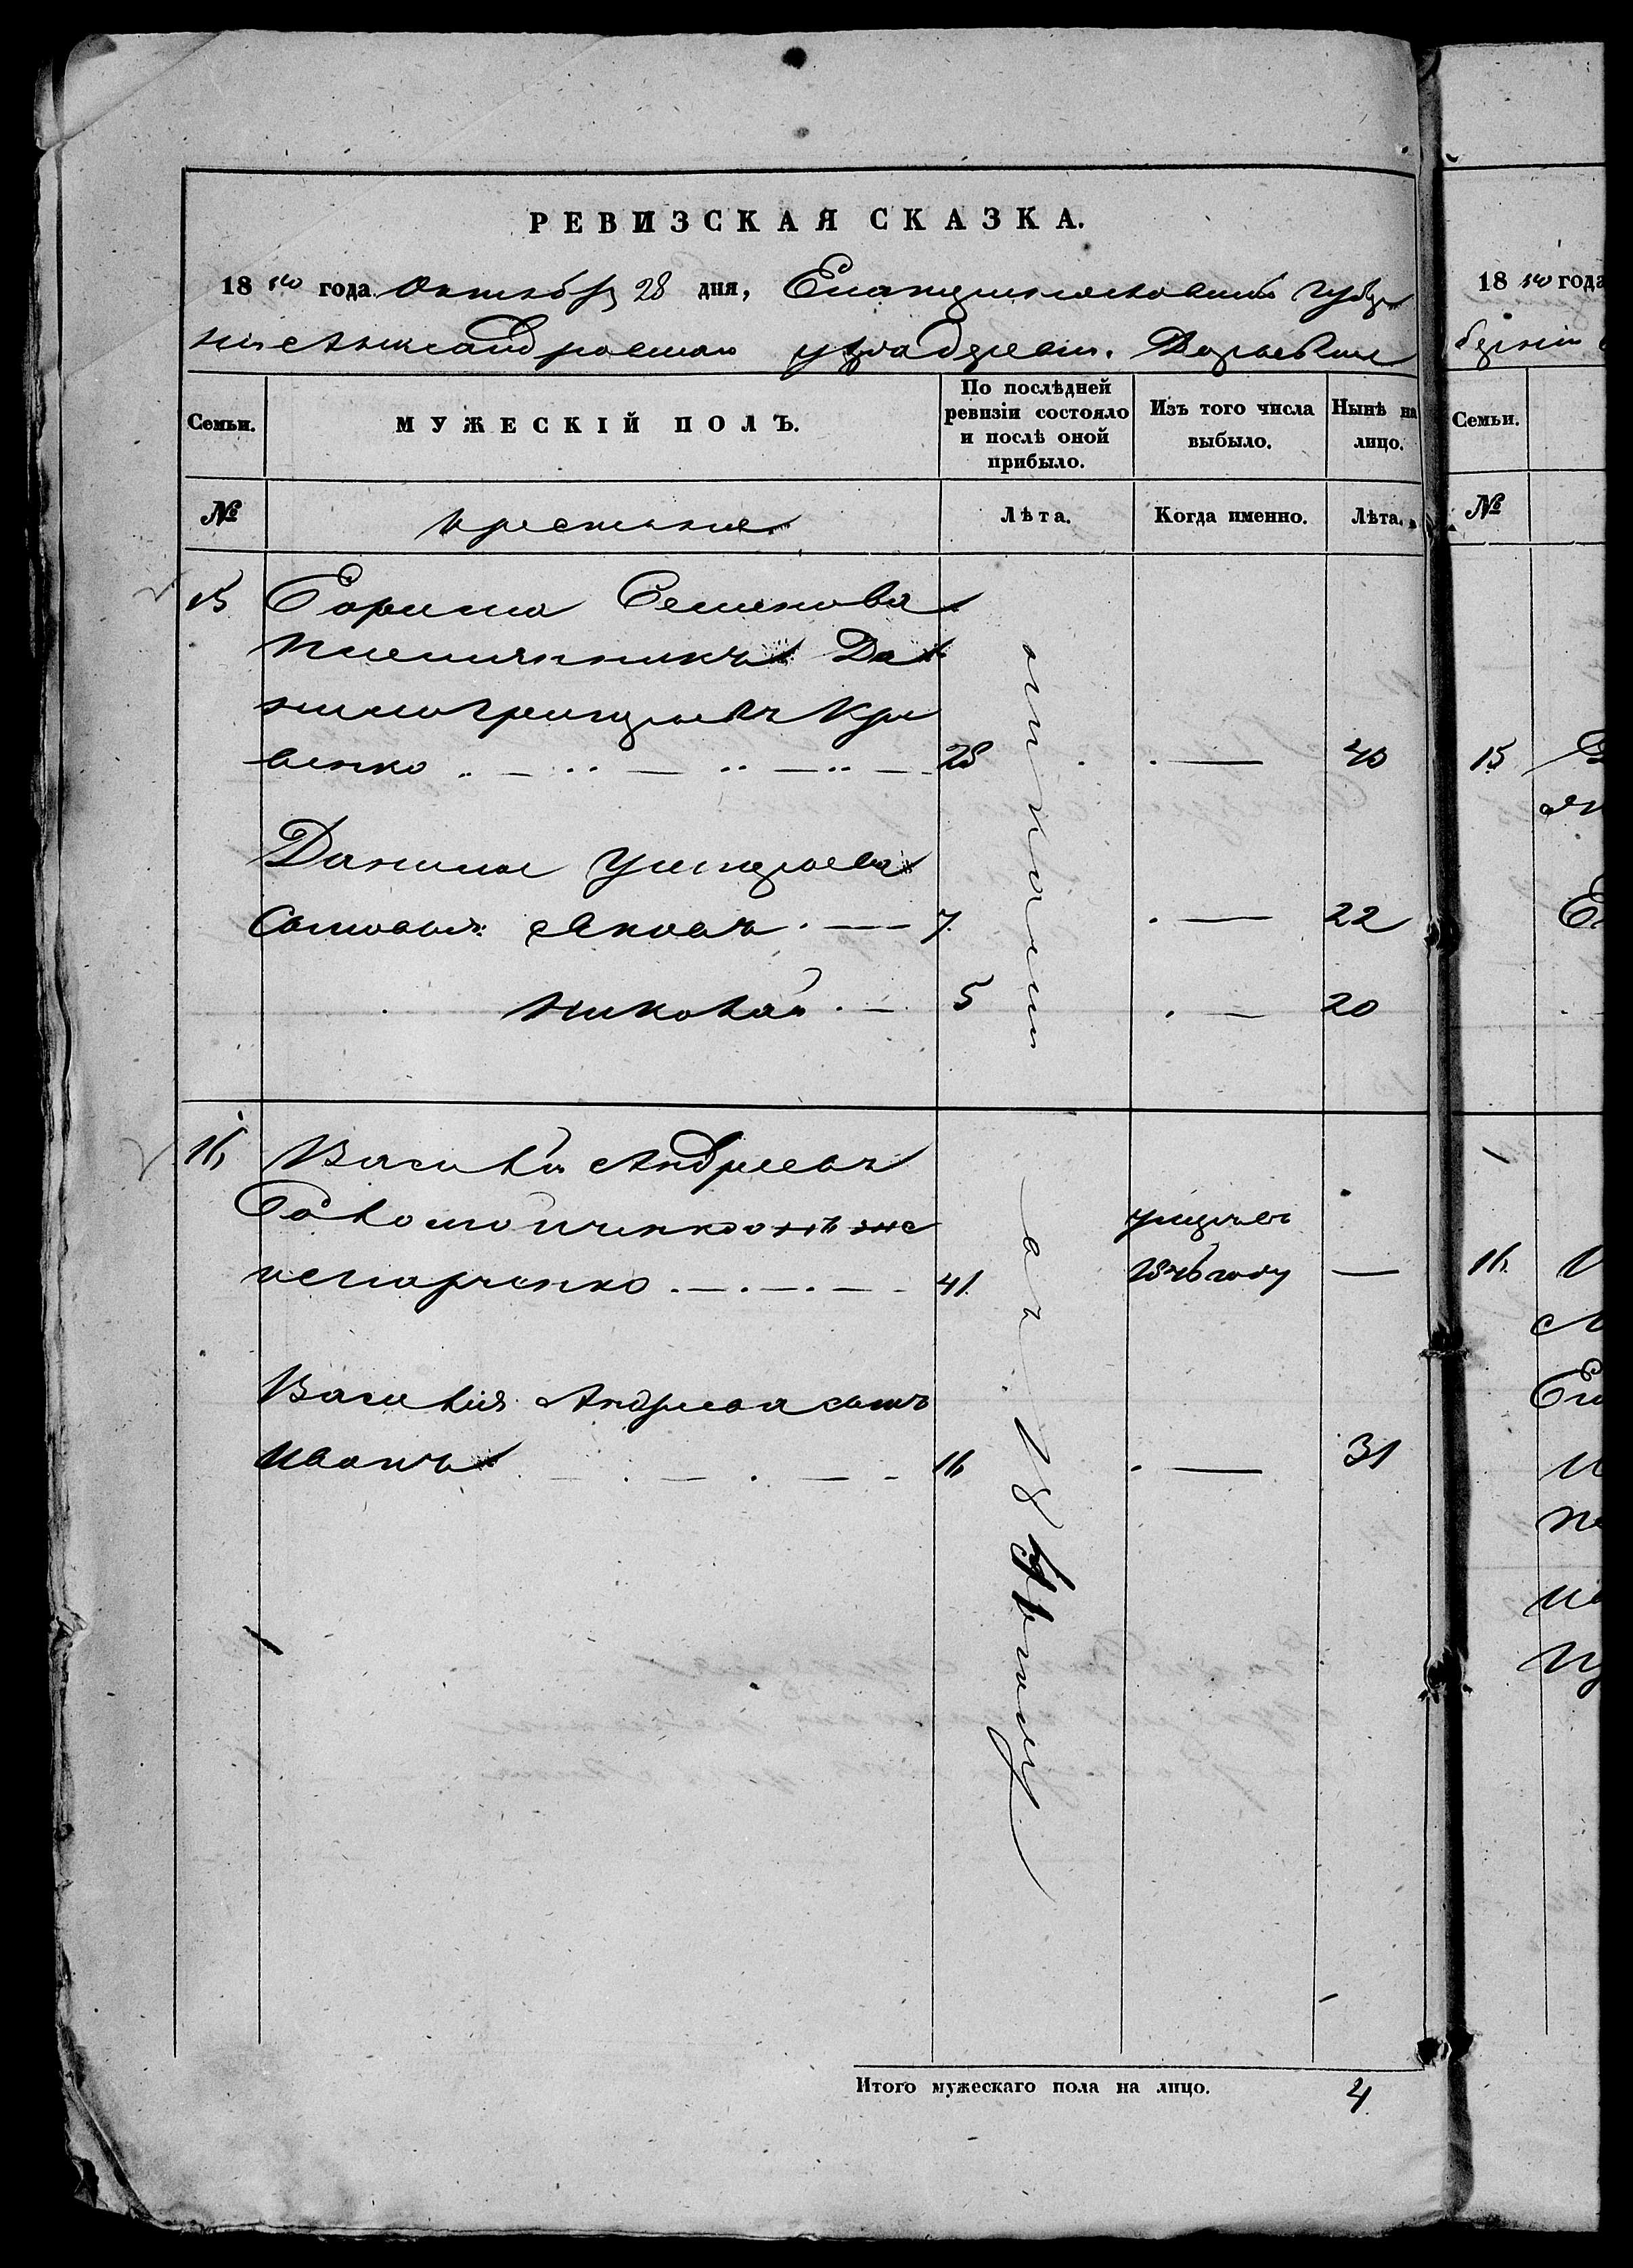 РЕВИЗСКАЯ СКАЗКА.
18 50 года Октября 28 дня, Екатеринославской губер
ніи Александровскаго уезда деревни Дарьевки
Семьи.
МУЖЕСКІЙ ПОЛЪ.
По послѣдней ревизіи состояло и послѣ оной прибыло.
Изъ того числа выбыло.
Нынѣ на лицо.
№
крестьяне
Лѣта.
Когда именно.
Лѣта.
15
Семенова
племянникъ Да
нило Кри
венко
28
40
Данилы
сыновья Яковъ
7
22
Николай
5
20
16
Василий Андреевъ
онъ же
и Марченко
41
умеръ въ
1846 году
Василія Андреева сынъ
Иванъ
16
31
Итого мужескаго пола на лицо.
4
18 50 года
Семьи.
№
15
16